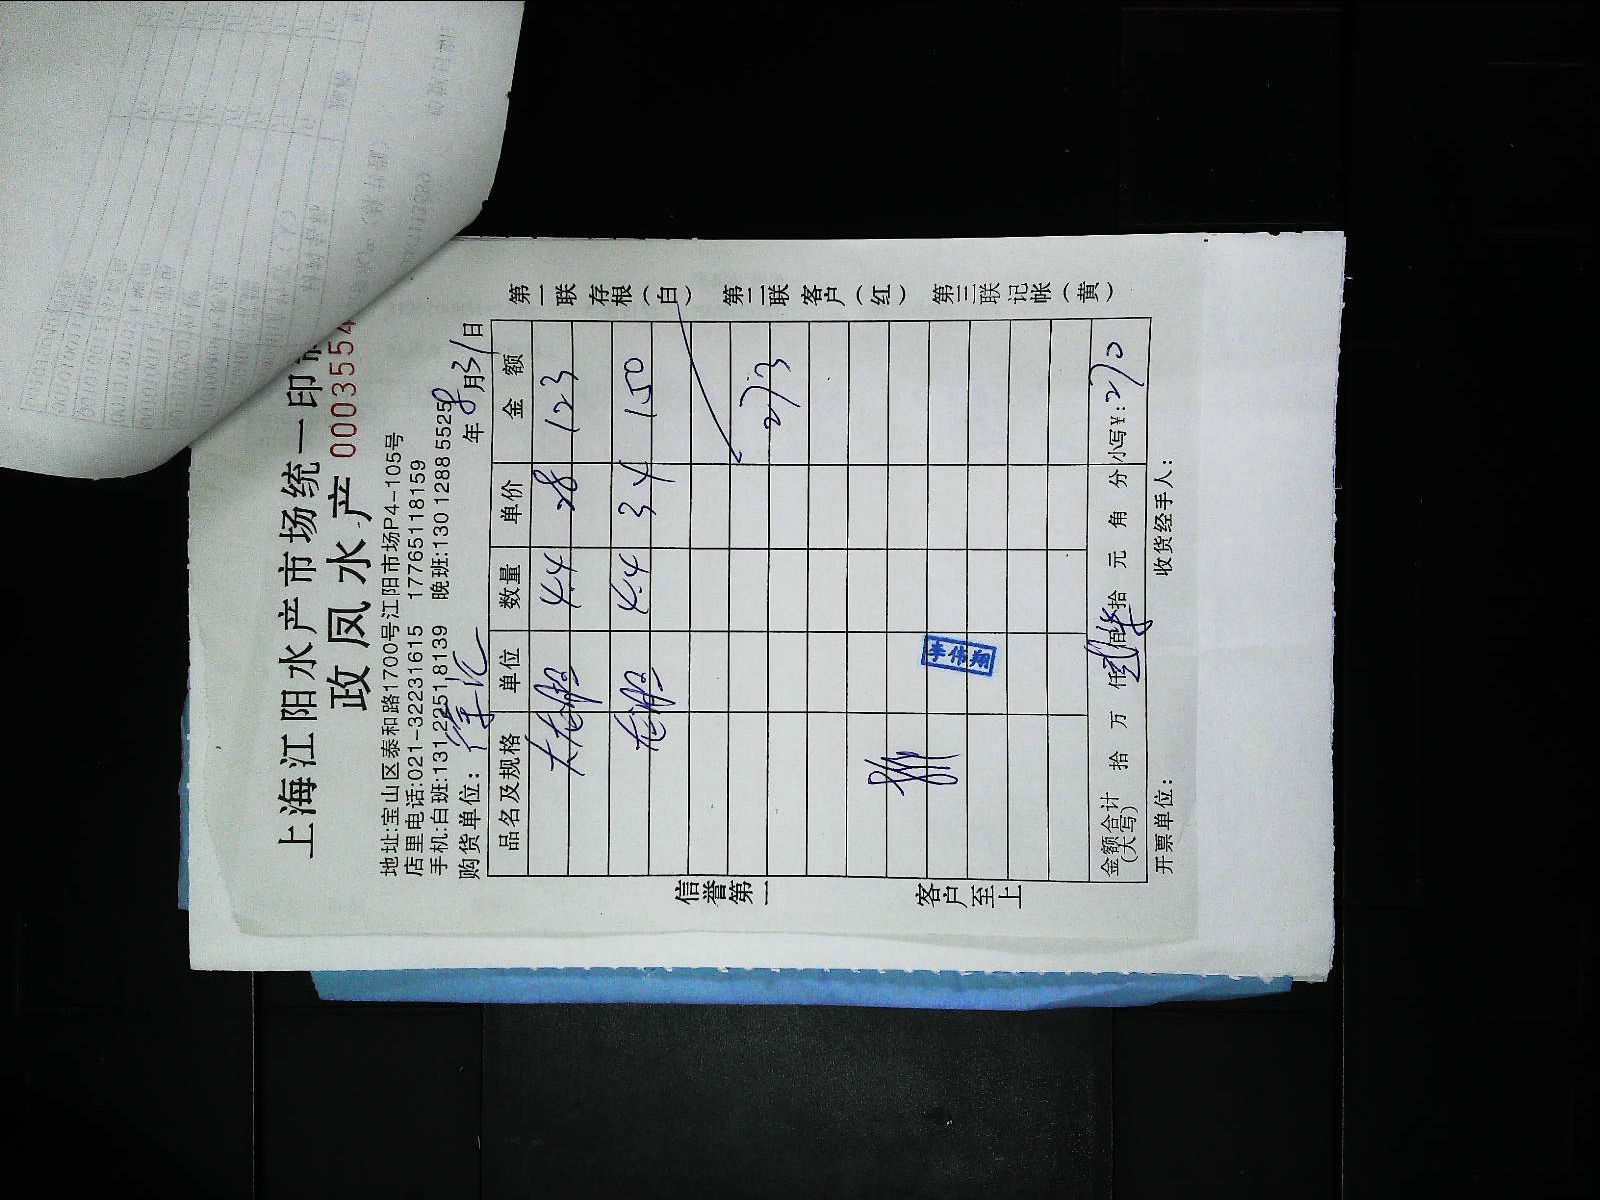 上海江阳水产市场统一印
政凤水产 0003554
地址:宝山区泰和路1700号江阳市场P4-105号
店里电话:021-32231615 17765118159
手机:白班:131 2251 8139 晚班:130 1288 5525
购货单位: 年8月31日
品名及规格 单位 数量 单价 金额
大龙虾 4.4 28 123
龙虾 4.4 34 150
273
李伟翔
金额合计(大写) 拾 万 仟 佰 拾 元 角 分 小写¥:270
开票单位: 收货经手人:
第一联 存根(白) 第二联 客户(红) 第三联 记帐(黄)
信誉第一 客户至上